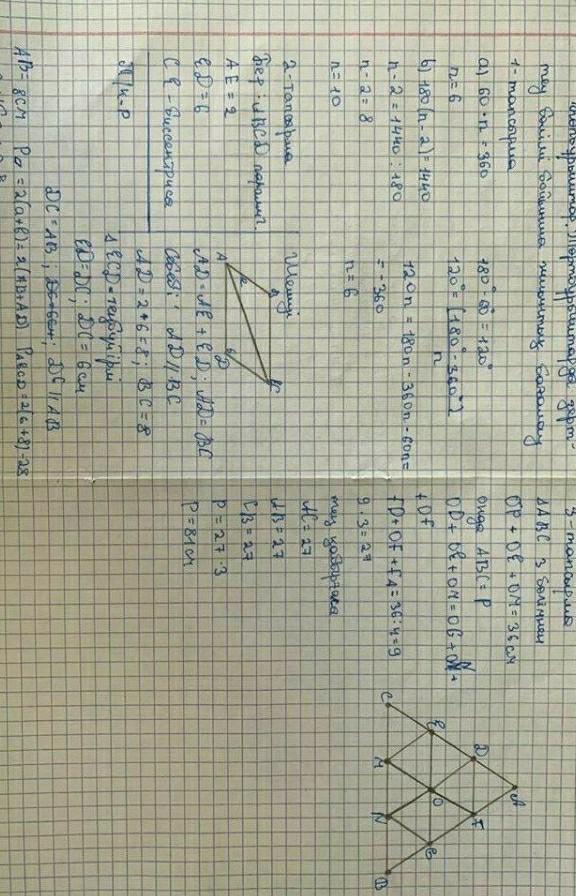 төртбұрыштар. Төртбұрыштарда дерт-
теу бөлімі бойынша жиынтық бағалау
1-тапсырма
a) 60 · n = 360
n = 6
180° - 60° = 120°
120° = (180° - 360°)
n
b) 180(n - 2) = 1440
n - 2 = 1440 : 180
n - 2 = 8
n = 10
120n = 180n - 360n - 60n =
= -360
n = 6
2-тапсырма
Бер: ABCD паралл.
AE = 2
ED = 6
CE - биссектриса
Т/к - P
Шешуі
A
2
6
D
AD = AE + ED; AD = BC
Себебі: AD // BC
AD = 2 + 6 = 8; BC = 8
Δ ECD - теңбүйірлі
ED = DC; DC = 6 см
DC = AB; DC // AB
AB = 8 см P = 2(a+b) = 2(AB+AD) PABCD = 2(6+8) = 28
3-тапсырма
ΔABC 3 бөліннен
OP + OE + OM = 36 см
онда ABC = P
OD + OE + OM = OG + ON +
+ OF
FD + OF + FA = 36 : 4 = 9
9 · 3 = 27
тең қабырғаса
AC = 27
AB = 27
CB = 27
P = 27 · 3
P = 81 см
A
D
F
E
O
G
C
M
N
B